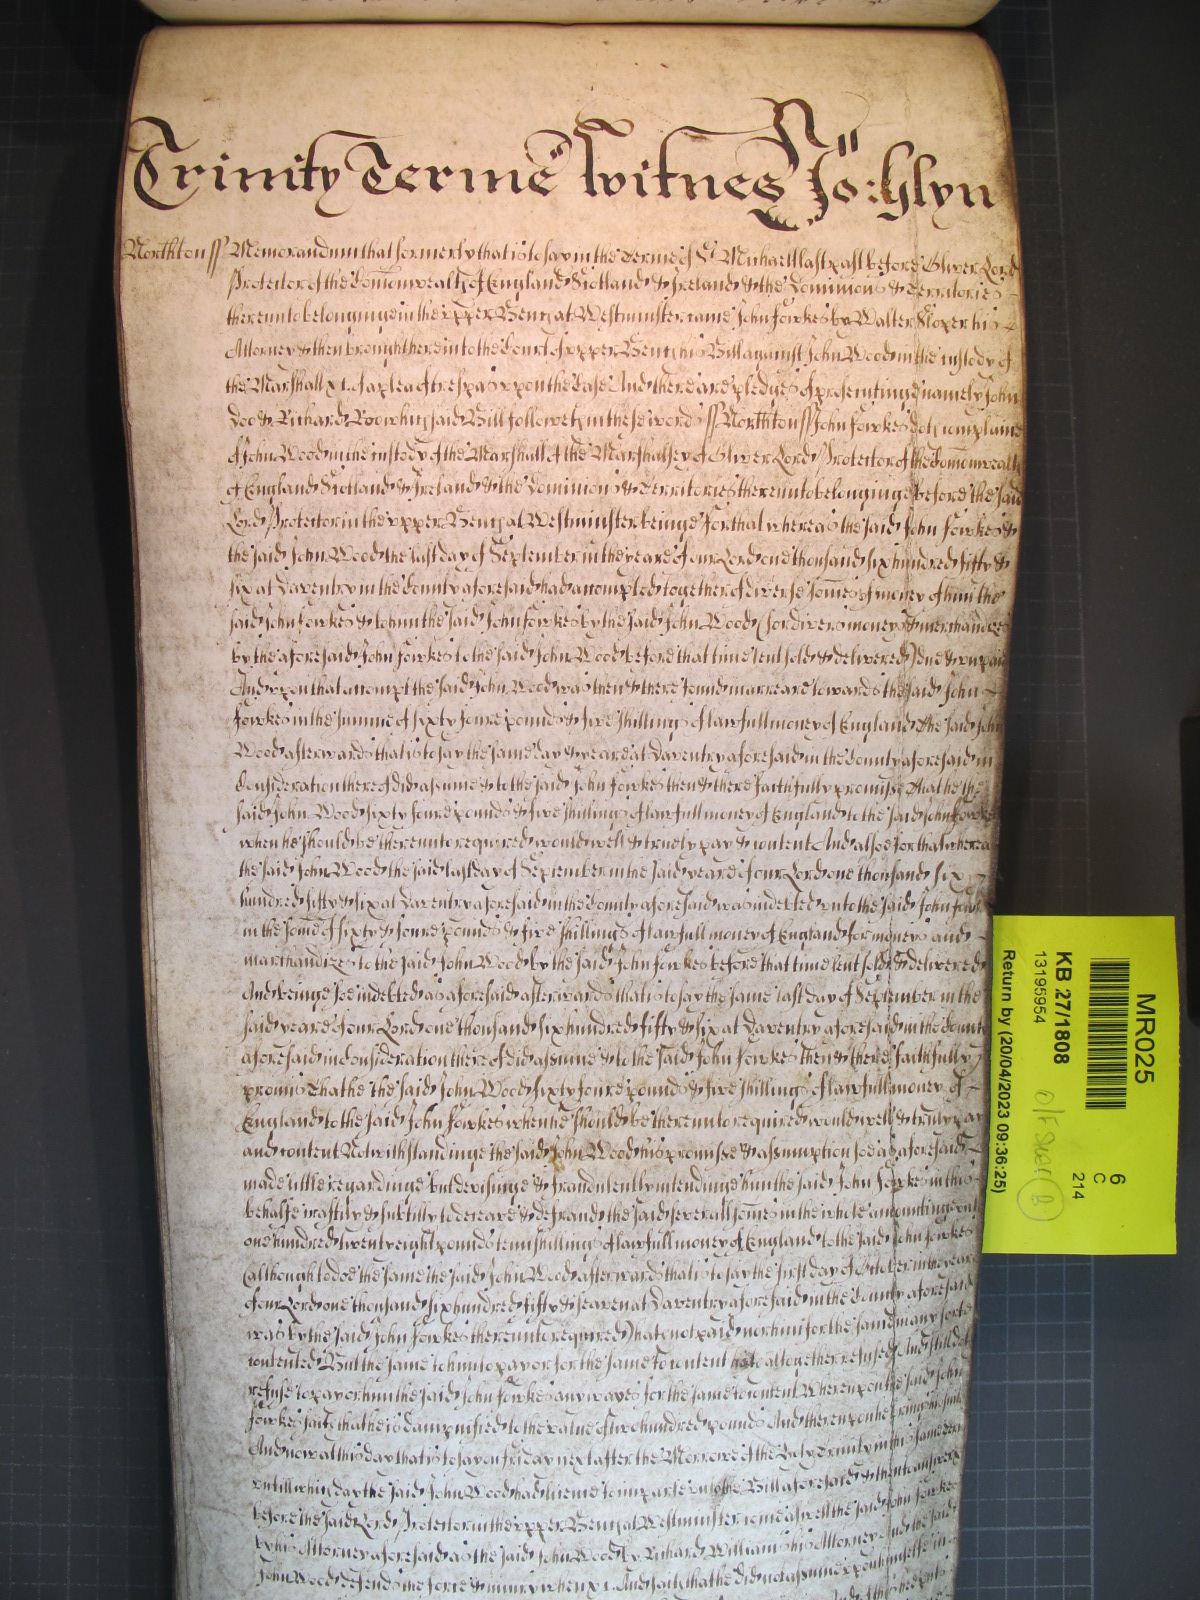 Trinity Terme Witnes Jo: Glyn
Northton ss Memorandum that formerly that is to say in the Terme of St Michaell last past before Oliver Lord
Protector of the Comonwealth of England Scotland & Ireland & the Dominions & Territories
thereunto belonginge in the upper Bench at Westminster came John Fowkes by Walter Sloper his
Attorney & then brought here into the Court of upper Bench his Bill against John Wood in the custody of
the Marshall &c. of a plea of trespas upon the Case And there are pledges of prosecutinge namely John
Doo & Richard Roo which said Bill followeth in these words ss Northton ss John Fowkes doth complaine
of John Wood in the custody of the Marshall of the Marshalsey of Oliver Lord Protector of the Comonwealth
of England Scotland & Ireland & the Dominions & Territories thereunto belonginge before the said
Lord Protector in the upper Bench at Westminster beinge For that whereas the said John Fowkes &
the said John Wood the last day of September in the yeare of our Lord one thousand six hundred fifty &
six at Daventry in the County aforesaid had accompted together of diverse somes of money of him the
said John Fowkes & to him the said John Fowkes by the said John Wood (for divers moneys & merchandizes
by the aforesaid John Fowkes to the said John Wood before that time lent sold & delivered) due & unpaid
And upon that accompt the said John Wood was then & there found in arreare towards the said John
Fowkes in the summe of sixty foure pounds & five shillings of lawfull money of England the said John
Wood afterwards that is to say the same day & yeare at Daventry aforesaid in the County aforesaid in
Consideration thereof did assume & to the said John Fowkes then & there faithfully promise That he the
said John Wood sixty foure pounds & five shillings of lawfull money of England to the said John Fowkes
when he should be thereunto required would well & truely pay & content And alsoe for that whereas
the said John Wood the said last day of September in the said yeare of our Lord one thousand six
hundred fifty & six at Daventry aforesaid in the County aforesaid was indebted unto the said John Fowkes
in the some of sixty & foure pounds & five shillings of lawfull money of England for moneys and
marchandizes to the said John Wood by the said John Fowkes before that time lent sold & delivered
And beinge soe indebted as aforesaid afterwards that is to say the same last day of September in the
said yeare of our Lord one thousand six hundred fifty & six at Daventry aforesaid in the County
aforesaid in consideration thereof did assume & to the said John Fowkes then & there faithfully
promis That he the said John Wood sixty foure pounds & five shillings of lawfull money of
England to the said John Fowkes when he should be thereunto required would well & truly pay
and content Notwithstandinge the said John Wood his promisse & assumption soe as aforesaid
made little regardinge but devisinge & fraudulently intendinge him the said John Fowkes in this
behalfe craftily & subtilly to deceave & defraud the said severall somes in the whole amountinge unto
one hundred twenty eight pounds tenn shillings of lawfull money of England to the said John Fowkes
(although to doe the same the said John Wood afterwards that is to say the first day of October in the yeare
of our Lord one thousand six hundred fifty & seaven at Daventry aforesaid in the County aforesaid
was by the said John Fowkes thereunto required) hath not paid nor him for the same in any sorte
contented But the same to him to pay or for the same to content hath altogether refused And still doth
refuse to pay or him the said John Fowkes any wayes for the same to content Whereupon the said John
Fowkes saith that he is dampnified to the value of two hundred pounds And thereupon he bringeth suite
And now at this day that is to say on Friday next after the Morrowe of the Holy Trinity in this same terme
untill which day the said John Wood had licence to imparle unto the Bill aforesaid & then to answere
before the said Lord Protector in the upper Bench at Westminster come aswell the said John Fowkes
by his Attorney aforesaid as the said John Wood by Richard Williams his Attorney And the said
John Wood defends the force & iniury when &c. And saith that he did not assume upon himselfe in
MR025
KB 27/1808
13195954
Return by (20/04/2023 09:36:25)
6
C
214